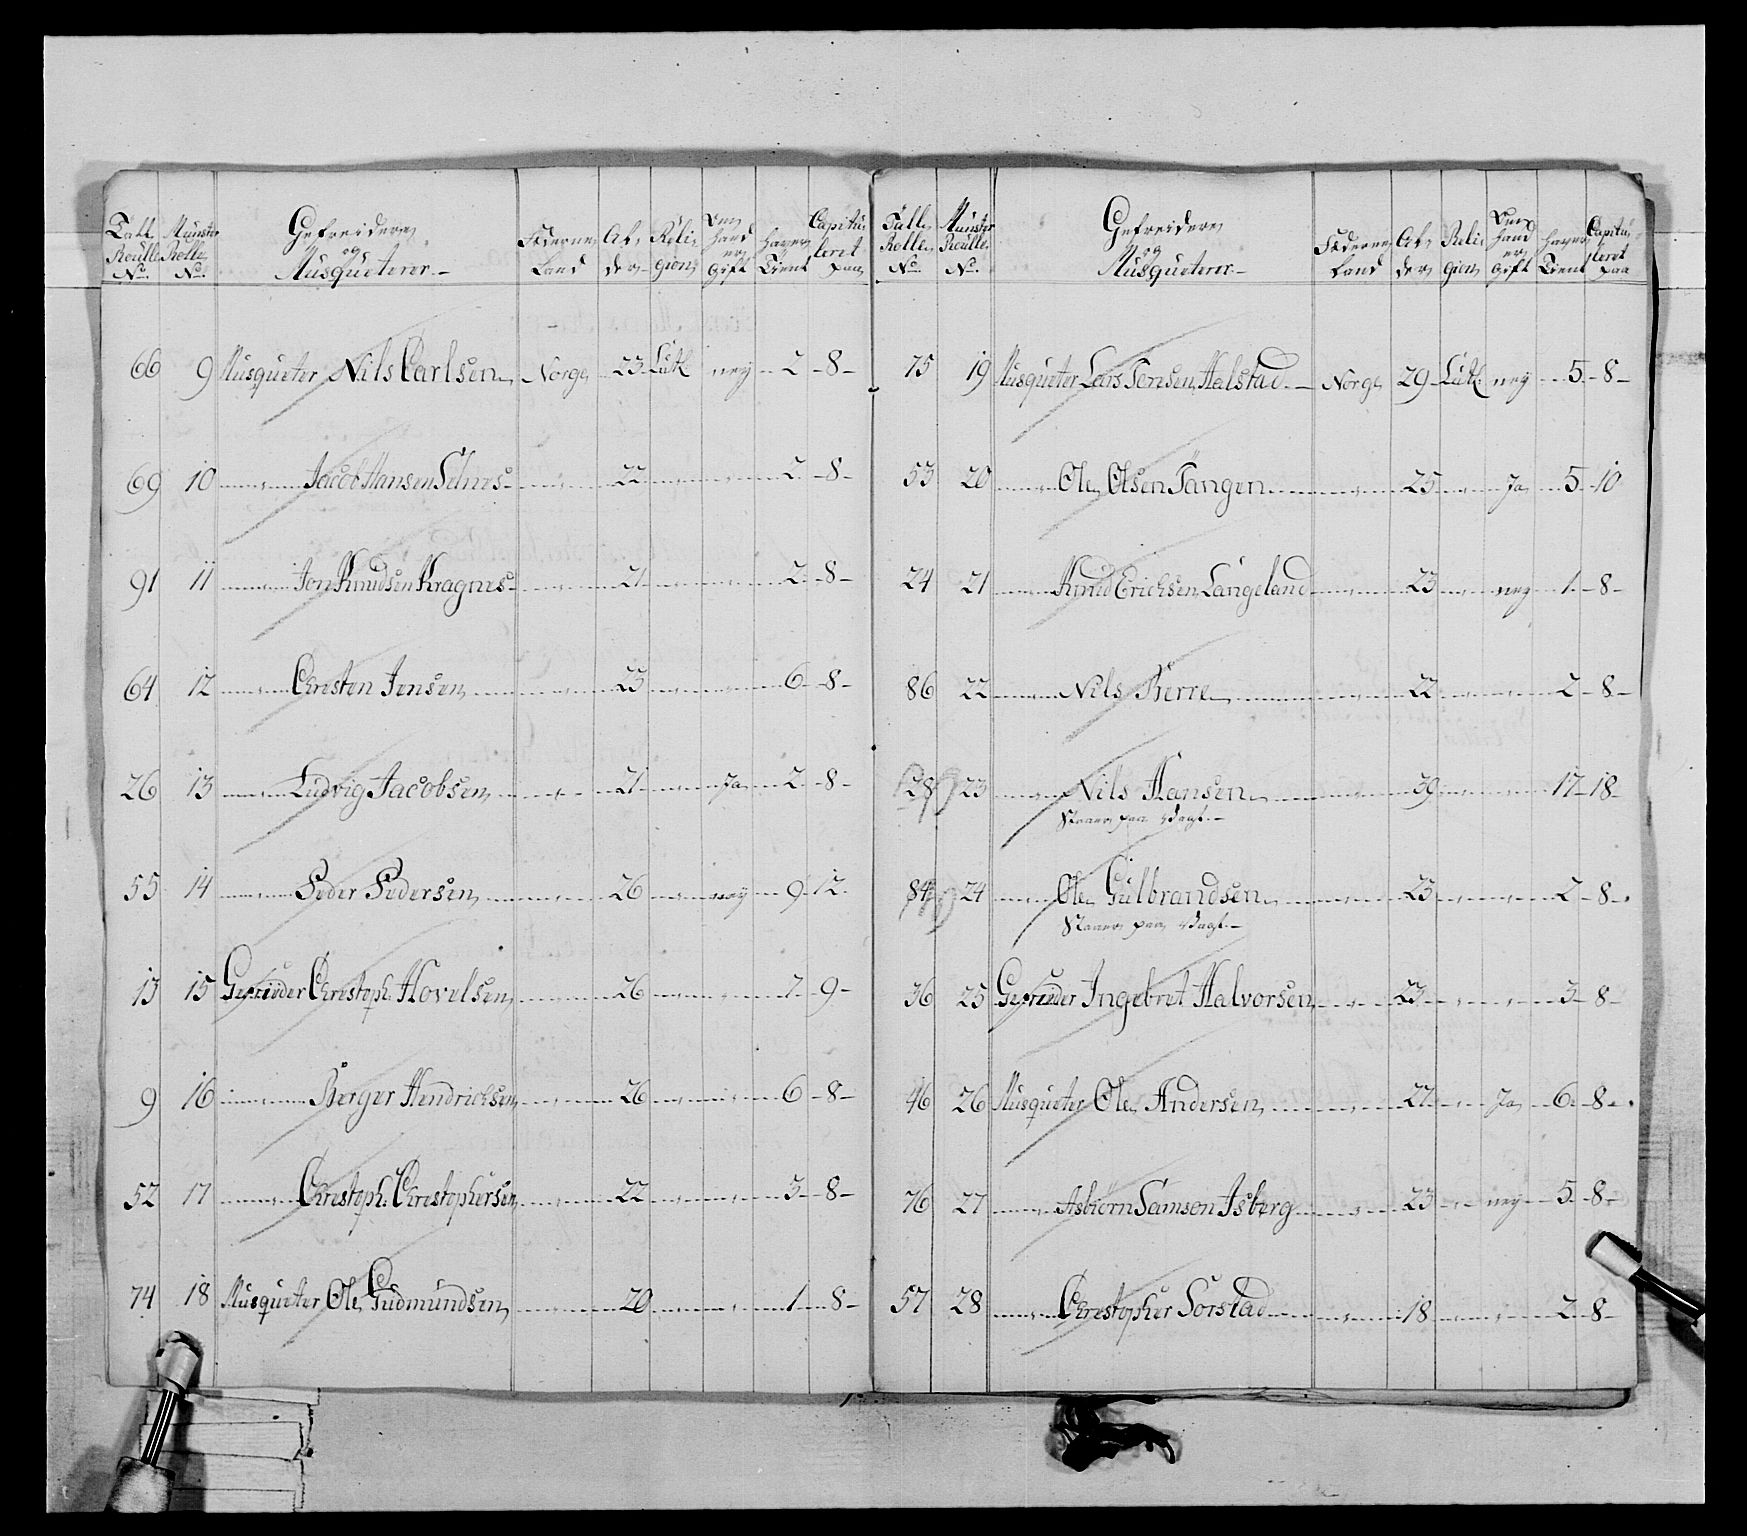 Tall Roulle No. Münster Rolle No. Gefreidere og Musqueterer Fæderne Land Al- der Reli- gion Om hand er Gift haver Tient Capitu- leret paa
66 9 Musqueter Nils Carlsen Norge 23 Luth. ney 2 8
69 10 Jacob Hansen Selnes 22 2 8
91 11 Jon Knudsen Kragnes 21 2 8
64 12 Christen Jensen 23 6 8
26 13 Ludvig Jacobsen 21 Ja 2 8
55 14 Peder Pedersen 26 ney 9 12
13 15 Gefreider Christoph. Hovelsen 26 7 9
9 16 Berger Hendrichsen 26 6 8
52 17 Christoph. Christophersen 22 3 8
74 18 Musqueter Ole Gudmundsen 20 1 8
Tall Rolle No. Münster Roulle No. Gefreidere og Musqueterer Fæderne Land Al- der Reli- gion Om hand er Gift haver Tient Capitu- leret paa
75 19 Musqueter Lars Jensen Halstad Norge 29 Luth. ney 5 8
53 20 Ole Olsen Tangen 25 Ja 5 10
24 21 Knud Erichsen Langeland 23 ney 1 8
86 22 Nils Berre 22 2 8
28 23 Nils Hansen 39 17 18
Staaer paa Vagt.
84 24 Ole Gulbrandsen 23 2 8
Staaer paa Vagt.
36 25 Gefreider Ingebret Halvorsen 23 3 8
46 26 Musqueter Ole Andersen 27 Ja 6 8
76 27 Asbiørn Samson Isberg 23 ney 5 8
57 28 Christopher Sorstad 18 2 8